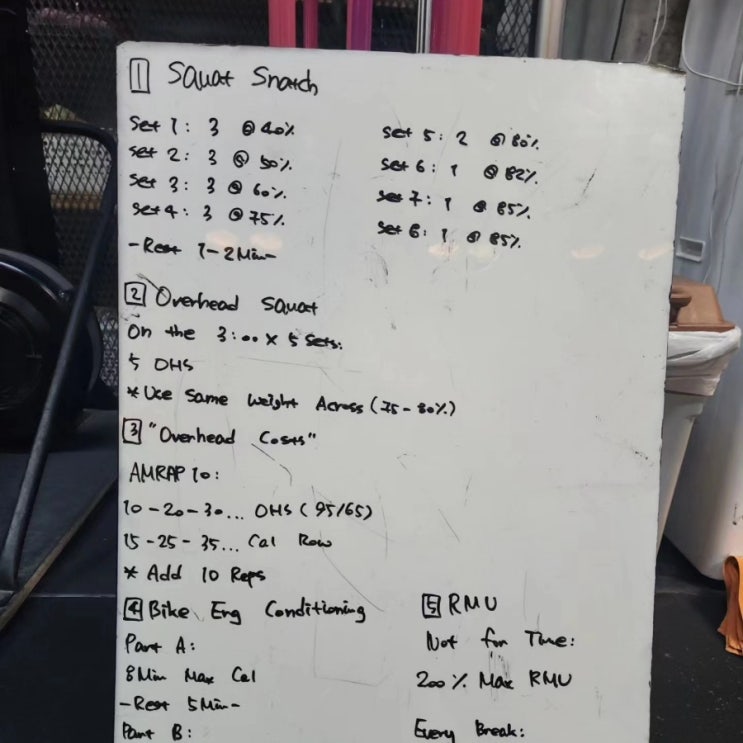 1 Squat Snatch
Set 1: 3 @ 40%
Set 2: 3 @ 50%
Set 3: 3 @ 60%
Set 4: 3 @ 75%
-Rest 1-2 Min-
Set 5: 2 @ 80%
Set 6: 1 @ 82%
Set 7: 1 @ 85%
Set 8: 1 @ 85%
2 Overhead Squat
On the 3:00 x 5 Sets:
5 OHS
* Use Same Weight Across (75-80%)
3 "Overhead Costs"
AMRAP 10:
10-20-30... OHS (95/65)
15-25-35... Cal Row
* Add 10 Reps
4 Bike Eng Conditioning
Part A:
8 Min Max Cal
-Rest 5 Min-
Part B:
5 RMU
Not for Time:
200% Max RMU
Every Break: